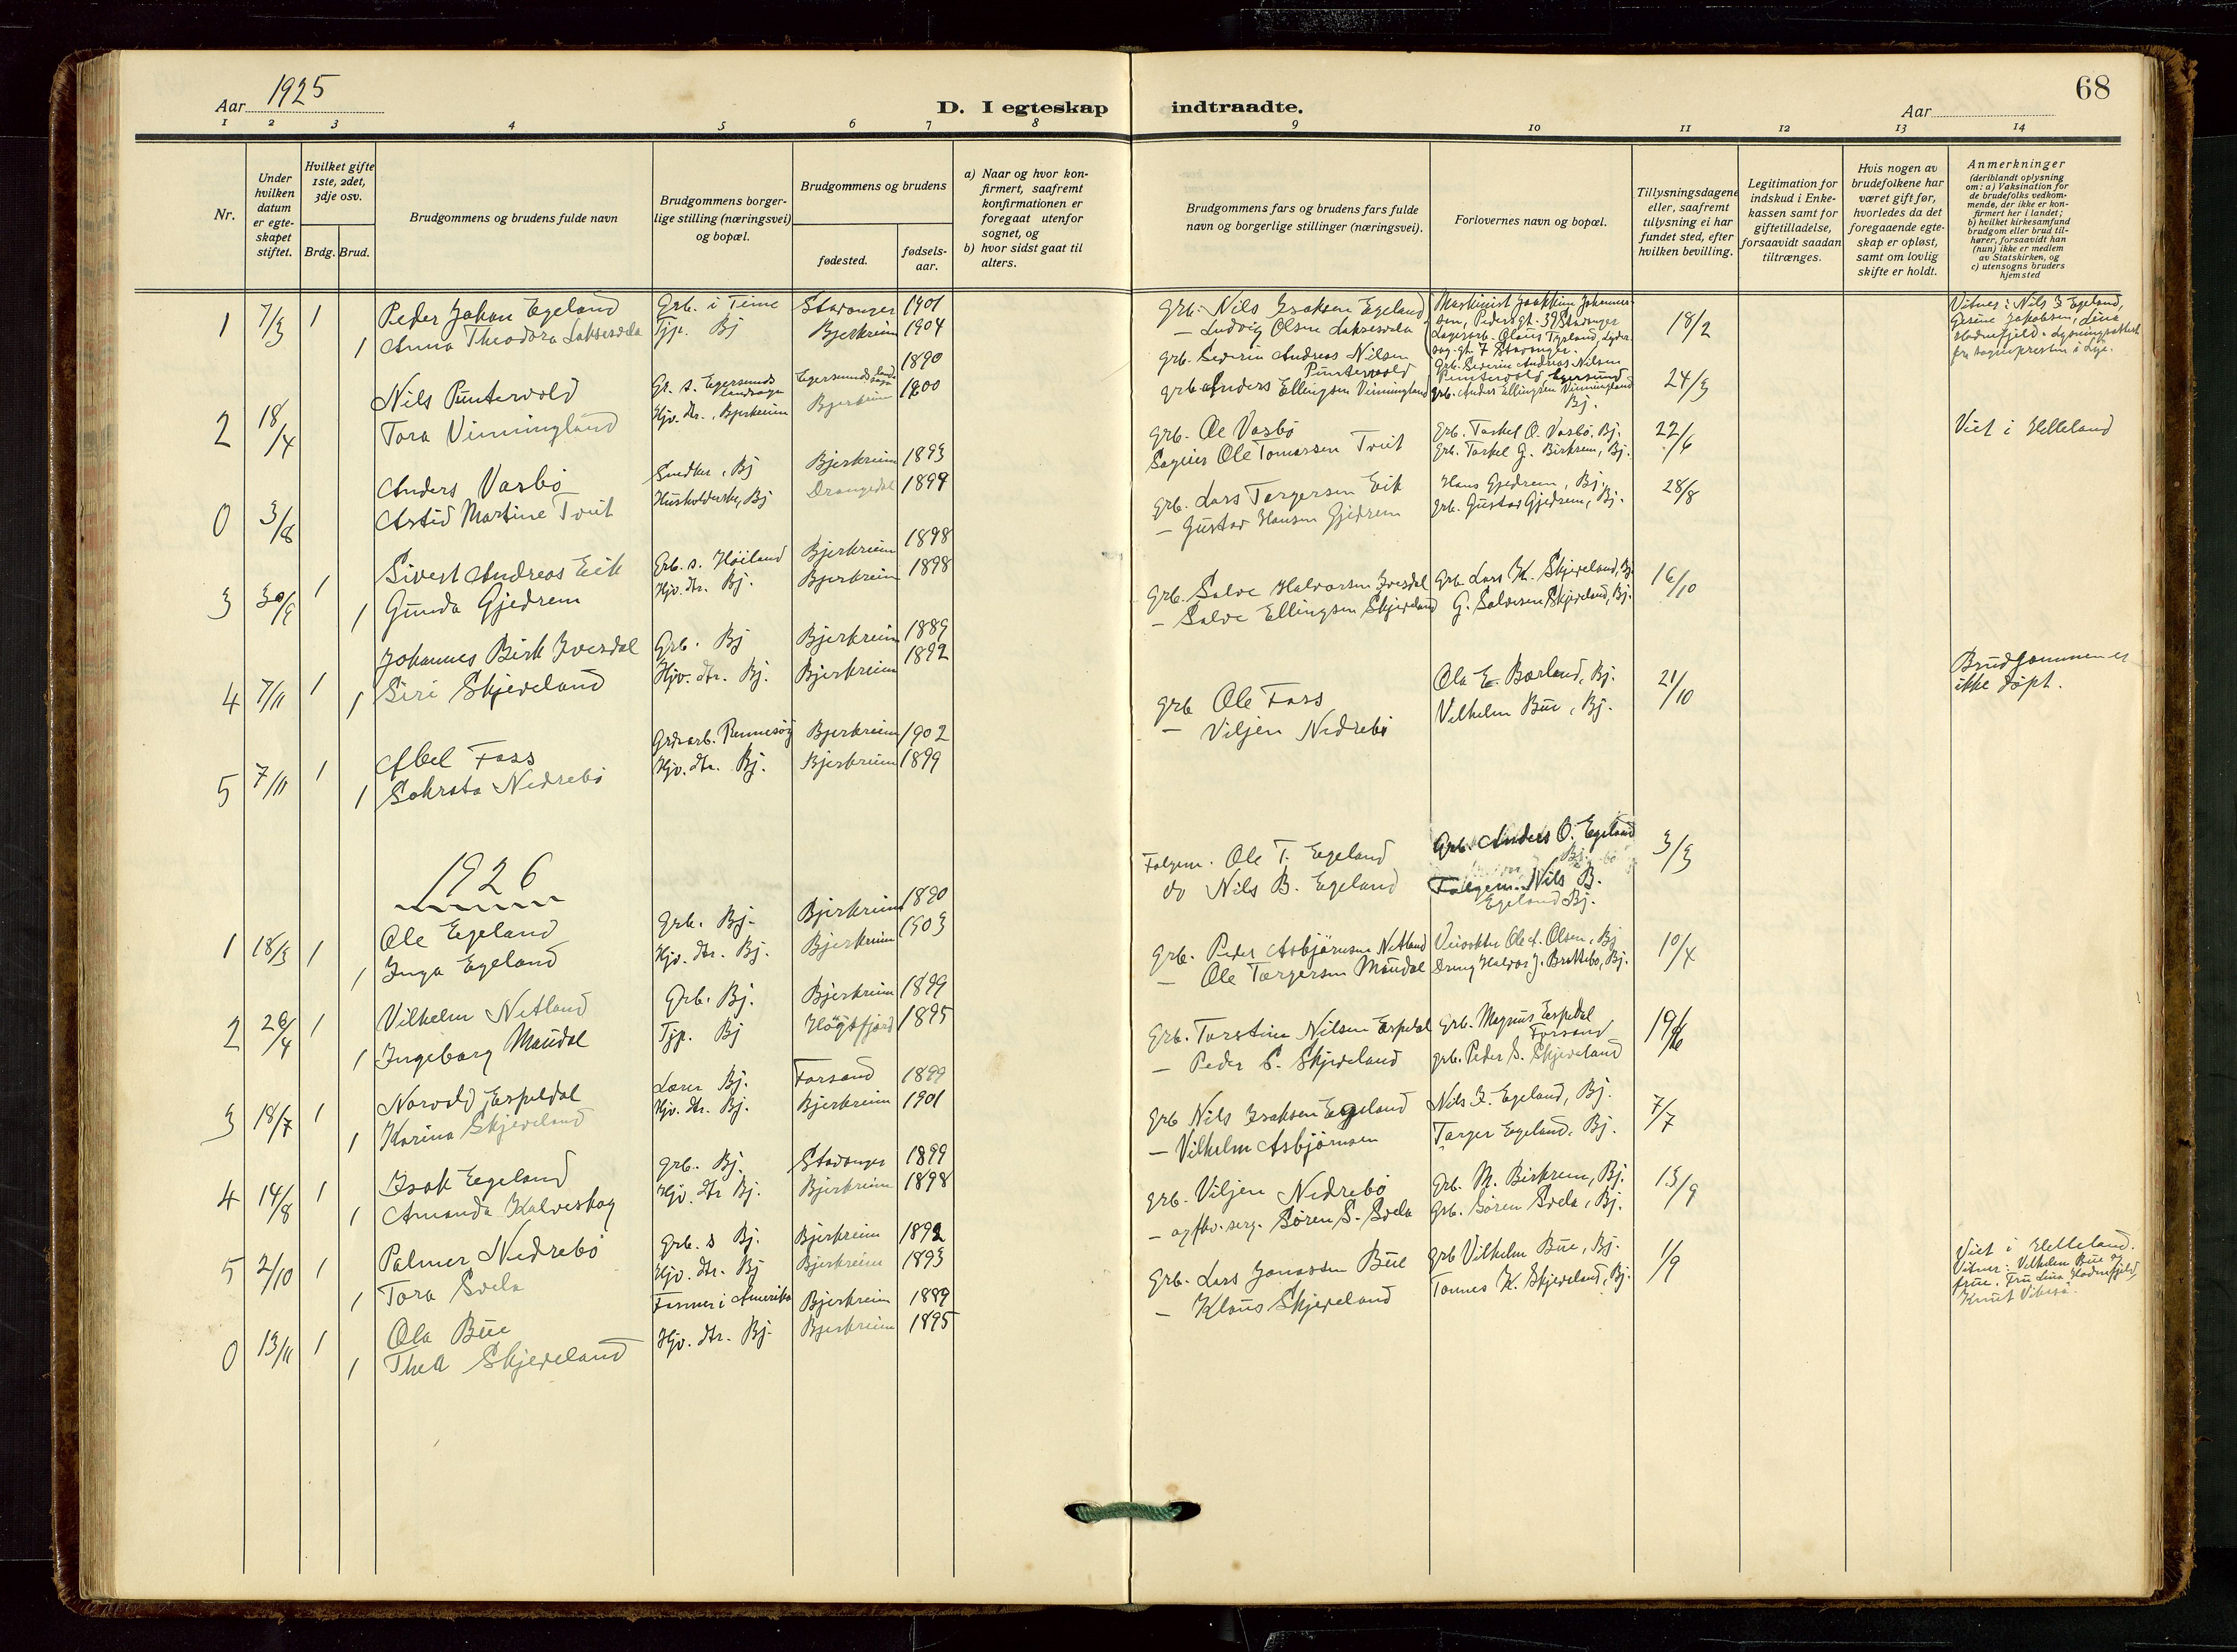 1925
Aar
D. I egteskap indtraadte.
68
Aar
1 2 3 4 5 6 7 8 9 10 11 12 13 14
Nr.
Under hvilken datum er egte-skapet stiftet.
Hvilket gifte 1ste, 2det, 3dje osv.
Brdg. Brud.
Brudgommens og brudens fulde navn
Brudgommens borger-lige stilling (næringsvei) og bopæl.
Brudgommens og brudens
fødested.
fødsels-aar.
a) Naar og hvor kon-firmert, saafremt konfirmationen er foregaat utenfor sognet, og
b) hvor sidst gaat til alters.
Brudgommens fars og brudens fars fulde navn og borgerlige stillinger (næringsvei).
Forlovernes navn og bopæl.
Tillysningsdagene eller, saafremt tillysning ei har fundet sted, efter hvilken bevilling.
Legitimation for indskud i Enke-kassen samt for giftetilladelse, forsaavidt saadan tiltrænges.
Hvis nogen av brudefolkene har været gift før, hvorledes da det foregaaende egte-skap er opløst, samt om lovlig skifte er holdt.
Anmerkninger (deriblandt oplysning om: a) Vaksination for de brudefolks vedkom-mende, der ikke er kon-firmert her i landet; b) hvilket kirkesamfund brudgom eller brud til-hører, forsaavidt han (hun) ikke er medlem av Statskirken, og c) utensogns bruders hjemsted
1 7/3 1 Peder Johan Egeland Grb. i Time Stavanger 1901 Grb. Nils Isaksen Egeland Maskinist Joakkim Johannes-
1 Anna Theodora Laksesvela Tjp. Bj Bjerkreim 1904 — Ludvig Olsen Laksesvela sen, Pedersgt. 39 Stavanger 18/2
Lagerarb. Olaus Tysland,
7 Stavanger.
Vitner: Nils I Egeland,
Gesine Jakobsen, Lina
Hadnefjeld. Lysningsattest
fra sognepresten i Lye.
2 18/4 Nils Puntervold Gr. s. Egersunds landsogn Egersunds landsogn 1890 Grb. Severin Andreas Nilsen Puntervold Grb. Severin Andreas Nilsen
Tora Vinningland Hjv. dtr., Bjerkreim Bjerkreim 1900 Grb Anders Ellingsen Vinningland Puntervold Egersund 24/3
Grb. Anders Ellingsen Vinningland
Bj.
0 3/8 Anders Vasbö Snedker, Bj Bjerkreim 1893 Grb. Ole Vasbö Grb. Torkel O. Vasbö. Bj. 22/6 Viet i Helleland
Astrid Martine Tveit Husholderske, Bj Drangedal 1899 Sageier Ole Tomassen Tveit Grb. Torkel G. Birkrem, Bj.
3 30/9 1 Sivert Andreas Eik Grb. s. Höiland Bjerkreim 1898 Grb. Lars Torgersen Eik Hans Gjedrem, Bj. 28/8
1 Gunda Gjedrem Hjv. dtr. Bj. Bjerkreim 1898 — Gustav Hansen Gjedrem Grb. Gustav Gjedrem, Bj.
4 7/11 1 Johannes Birk Ivesdal Grb. Bj Bjerkreim 1889 Grb. Salve Halvorsen Ivesdal Grb. Lars K. Skjeveland, Bj 16/10
1 Siri Skjeveland Hjv. dtr. Bj. Bjerkreim 1892 — Salve Ellingsen Skjeveland G. Salvesen Skjeveland, Bj.
5 7/11 1 Abel Foss Grdarb. Rennesöy Bjerkreim 1902 Grb Ole Foss Ola E. Borland, Bj. 21/10 Brudgommen er
1 Sakrata Nedrebö Hjv. dtr. Bj. Bjerkreim 1899 — Viljen Nedrebö Vilhelm Bue, Bj. ikke döpt.
1926
1 18/3 1 Ole Egeland Grb. Bj. Bjerkreim 1890 Folgem. Ole T. Egeland Grb. Anders O. Egeland 3/3
Bj.
1 Inga Egeland Hjv. dtr. Bj. Bjerkreim 1903 do Nils B. Egeland Folgem. Nils B.
Egeland Bj.
2 26/4 1 Vilhelm Netland Grb. Bj. Bjerkreim 1899 Grb. Peder Asbjörnsen Netland Veivokter Ole A. Olsen, Bj 10/4
1 Ingeborg Maudal Tjp. Bj Högsfjord 1895 — Ole Torgersen Maudal Dreng Halvor J. Brattebö, Bj.
3 18/7 1 Norvald Espedal Lærer Bj. Forsand 1899 Grb. Torstein Nilsen Espedal Grb. Magnus Espedal Forsand 19/6
1 Karina Skjeveland Hjv. dtr. Bj. Bjerkreim 1901 — Peder S. Skjeveland Grb. Peder S. Skjeveland
4 14/8 1 Isak Egeland Grb. Bj. Stavanger 1899 Grb Nils Isaksen Egeland Nils I. Egeland, Bj. 7/7
1 Amanda Kalveshag Hjv. dtr Bj. Bjerkreim 1898 — Vilhelm Asbjörnsen Torger Egeland, Bj.
5 2/10 1 Palmer Nedrebö Grb. s Bj. Bjerkreim 1892 Grb. Viljen Nedrebö Grb. M. Birkrem, Bj. 13/9
1 Tora Svela Hjv. dtr. Bj Bjerkreim 1893 — og fhv. serg. Sören S. Svela Grb. Sören Svela, Bj.
0 13/11 1 Ola Bue Farmer i Amerika Bjerkreim 1889 Grb. Lars Jonassen Bue Grb Vilhelm Bue, Bj. 1/9
1 Thea Skjeveland Hjv. dtr. Bj. Bjerkreim 1895 — Klaus Skjeveland Tönnes K. Skjeveland, Bj.
Viet i Helleland.
Vitner: Vilhelm Bue og
frue. Fru Lina Hadnefjeld,
Knut